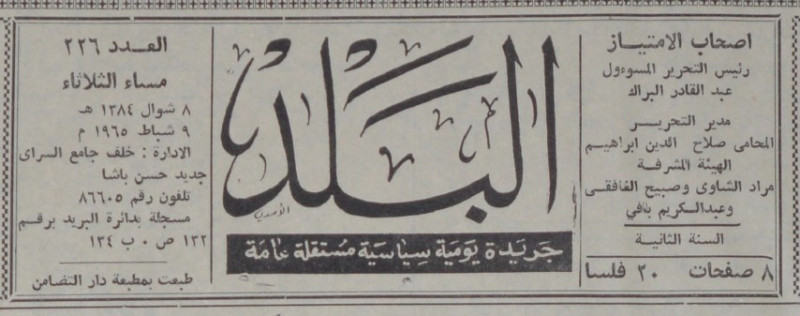 اصحاب الامتياز
رئيس التحرير المسوءول
عبد القادر البراك
مدير التحرير
المحامى صلاح الدين ابراهيم
الهيئة المشرفة
مراد الشاوى وصبيح الغافقى
وعبدالكريم بافي
السنة الثانية
٨ صفحات ٢٠ فلسا
البلد
جريدة يومية سياسية مستقلة عامة
العدد ٢٢٦
مساء الثلاثاء
٨ شوال ١٣٨٤ هـ
٩ شباط ١٩٦٥ م
الادارة : خلف جامع السراى
جديد حسن باشا
تلفون رقم ٨٦٦٠٥
مسجلة بدائرة البريد برقم
١٣٢ ص ٠ ب ١٣٤
طبعت بمطبعة دار التضامن